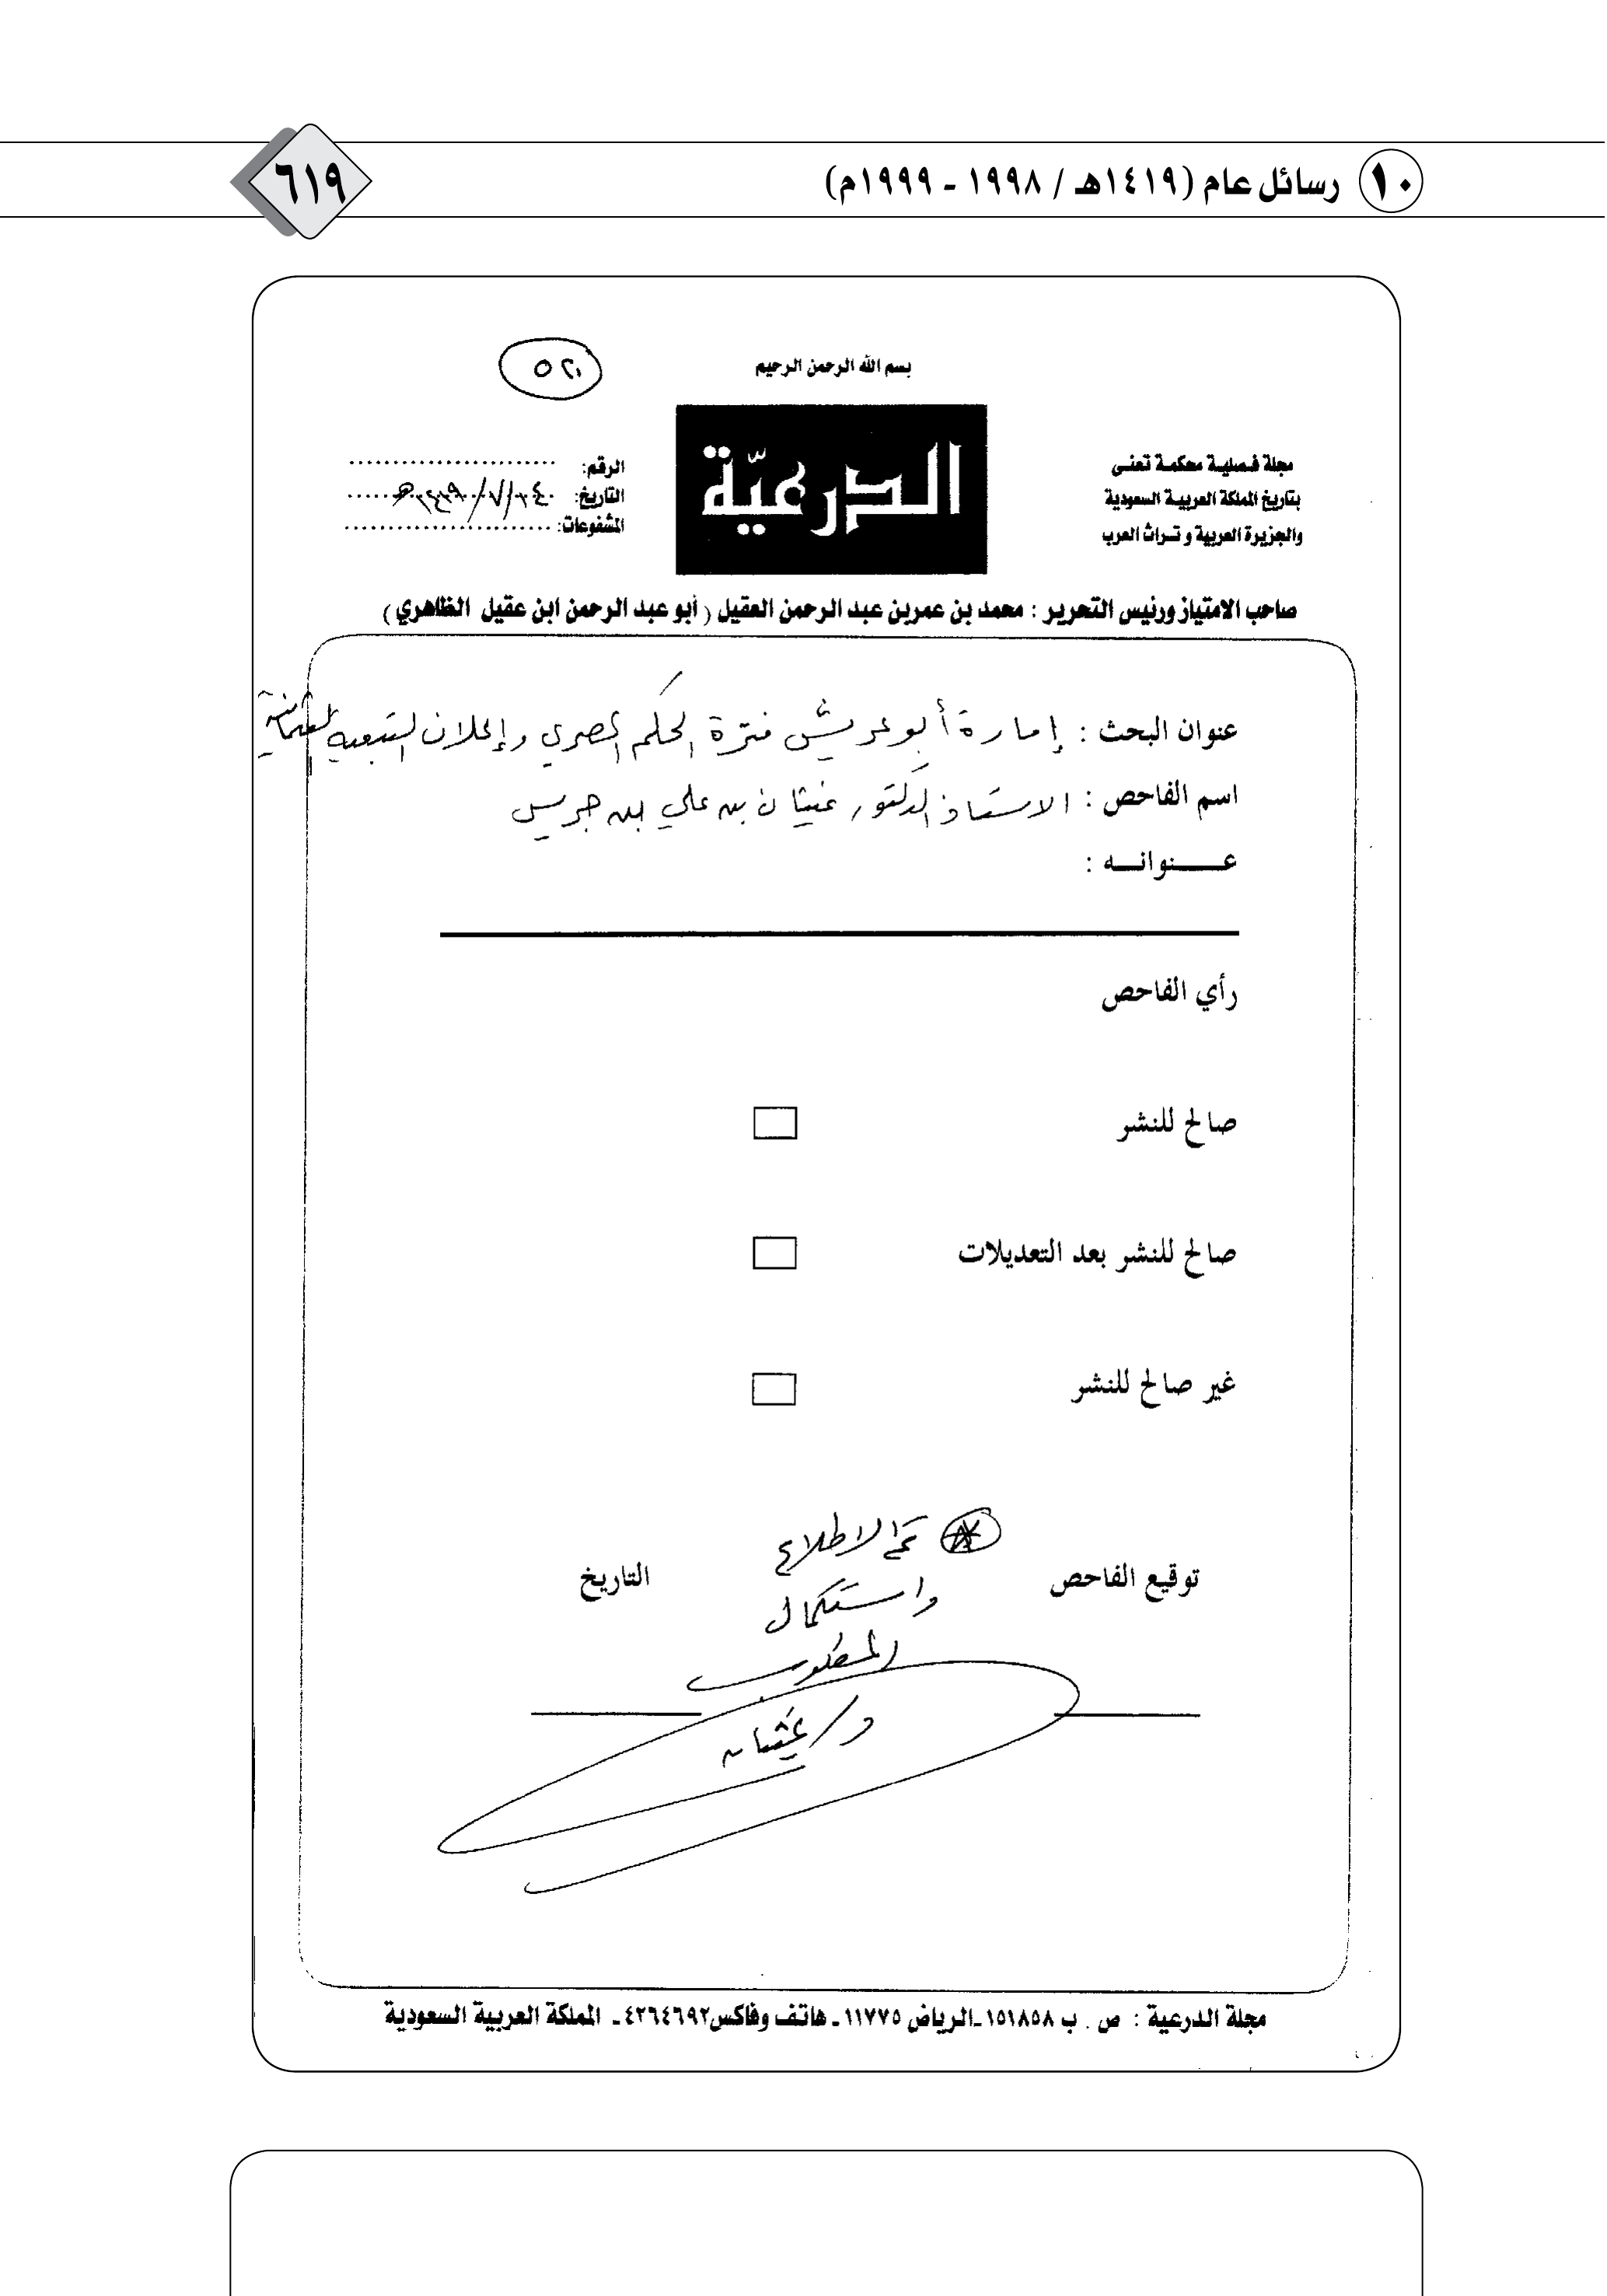 ١٠ رسائل عام (١٤١٩هـ / ١٩٩٨ - ١٩٩٩م)
٦١٩
٥٢٠
بسم الله الرحمن الرحيم
الدرعيّة
مجلة فصلية محكمة تعنى
بتاريخ المملكة العربية السعودية
والجزيرة العربية وتراث العرب
الرقم:
التاريخ: ١٤١٩/٧/٢٤هـ
المشفوعات:
صاحب الامتياز ورئيس التحرير : محمد بن عمر بن عبد الرحمن العقيل (أبو عبد الرحمن ابن عقيل الظاهري)
عنوان البحث : إمارة أبو عريش فترة الحكم المصري وإعلان التبعية العثمانية
اسم الفاحص : الاستاذ الدكتور غيثان بن علي بن جريس
عـــنوانــه :
رأي الفاحص
صالح للنشر
صالح للنشر بعد التعديلات
غير صالح للنشر
توقيع الفاحص
التاريخ
تم الاطلاع
واستكمال
المطلوب
د/ غيثان
مجلة الدرعية : ص . ب ١٥١٨٥٨ ـ الرياض ١١٧٧٥ ـ هاتف وفاكس ٤٢٦٤٦٩٢ ـ المملكة العربية السعودية